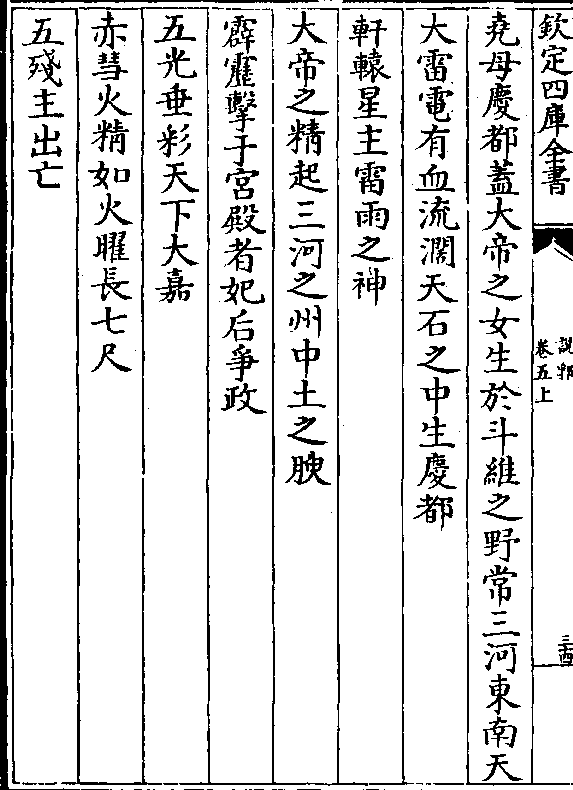 欽定四庫全書
說郛
卷五上
三十四
堯母慶都蓋大帝之女生於斗維之野常三河東南天
大雷電有血流潤天石之中生慶都
軒轅星主雷雨之神
大帝之精起三河之州中土之腴
霹靂擊于宮殿者妃后爭政
五光垂彩天下大嘉
赤彗火精如火曜長七尺
五殘主出亡